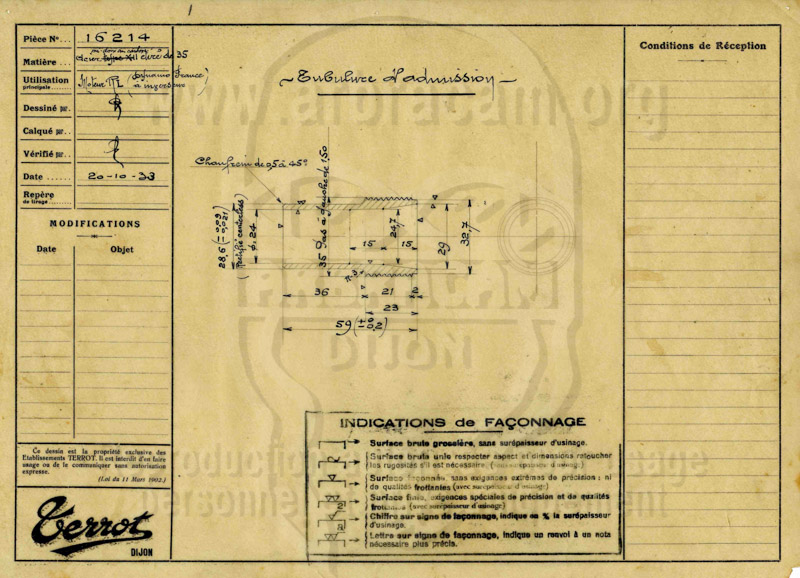 1
Pièce Nº... 16214
Matière... Acier de 35
Utilisation principale..... Moteur RL (Dynamo France)
Dessiné par.
Calqué par..
Vérifié par..
Date ...... 20-10-33
Repère de tirage.
MODIFICATIONS
Date Objet
Tubulure d'admission
Conditions de Réception
Chanfrein de 0,5 à 45º
28,6
(Rectifié centerless)
ф. 24
35 Pas à gauche de 1,50
24,7
29
32,7
15 15
36 21 2
23
59 (± 0 0,2)
INDICATIONS de FAÇONNAGE
Surface brute grossière, sans surépaisseur d'usinage.
Surface brute unie respecter aspect et dimensions retoucher
les rugosités s'il est nécessaire. (sans surépaisseur d'usinage)
Surface façonnée sans exigences extrêmes de précision : ni
de qualités frottantes (avec surépaisseur d'usinage)
Surface finie, exigences spéciales de précision et de qualités
frottantes (avec surépaisseur d'usinage)
2
Chiffre sur signe de façonnage, indique en % la surépaisseur
d'usinage.
a
Lettre sur signe de façonnage, indique un renvoi à un nota
nécessaire plus précis.
Ce dessin est la propriété exclusive des
Etablissements TERROT. Il est interdit d'en faire
usage ou de le communiquer sans autorisation
expresse.
(Loi du 11 Mars 1902.)
Terrot
DIJON
www.arbracam.org
ARBRACAM
DIJON